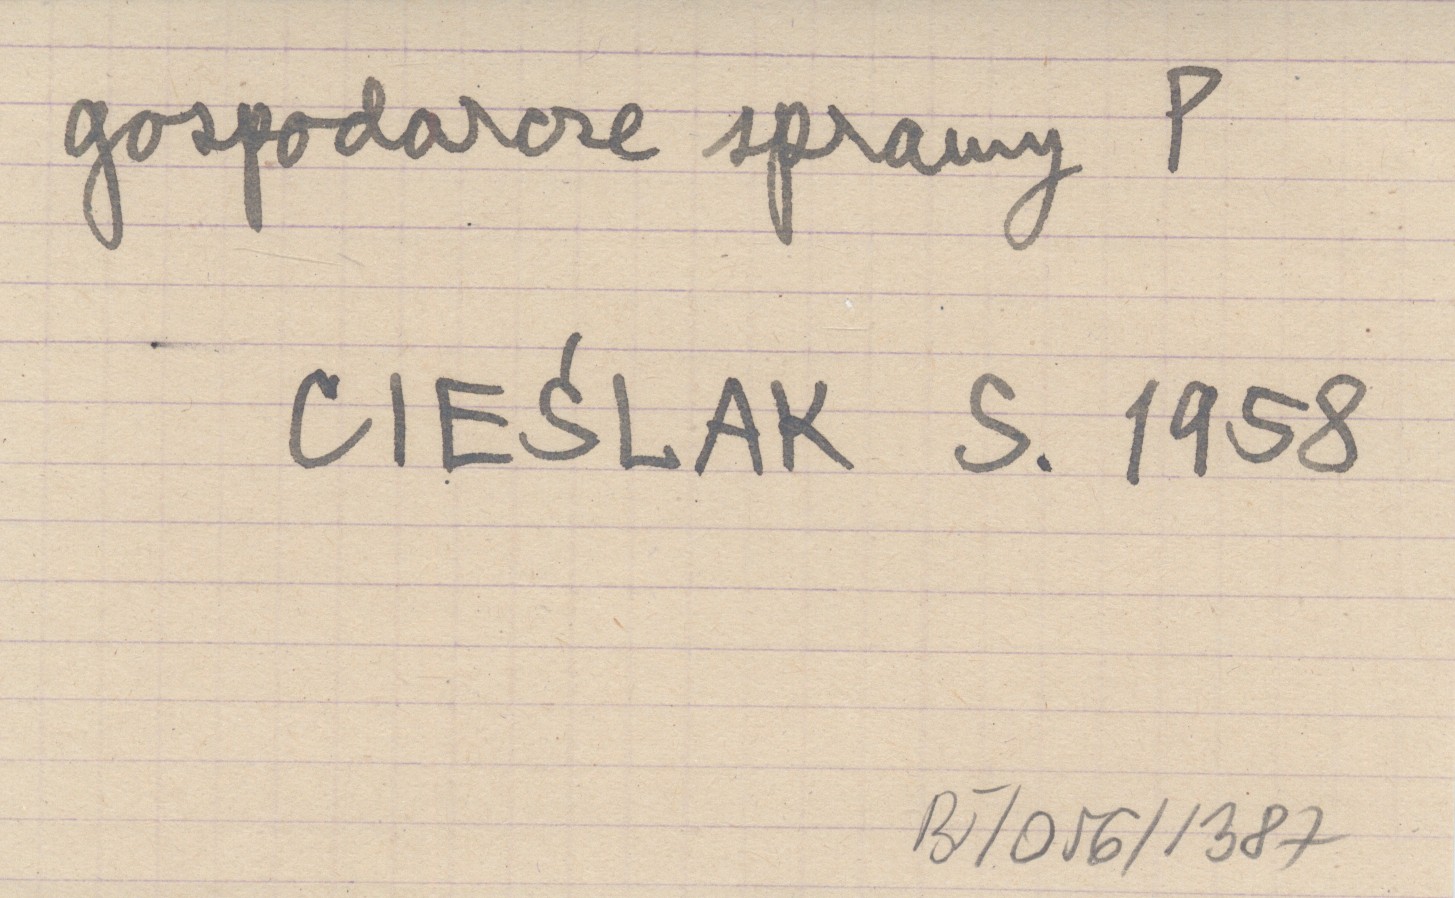 gospodarcze sprawy P
CIEŚLAK S. 1958
BT/056/1387